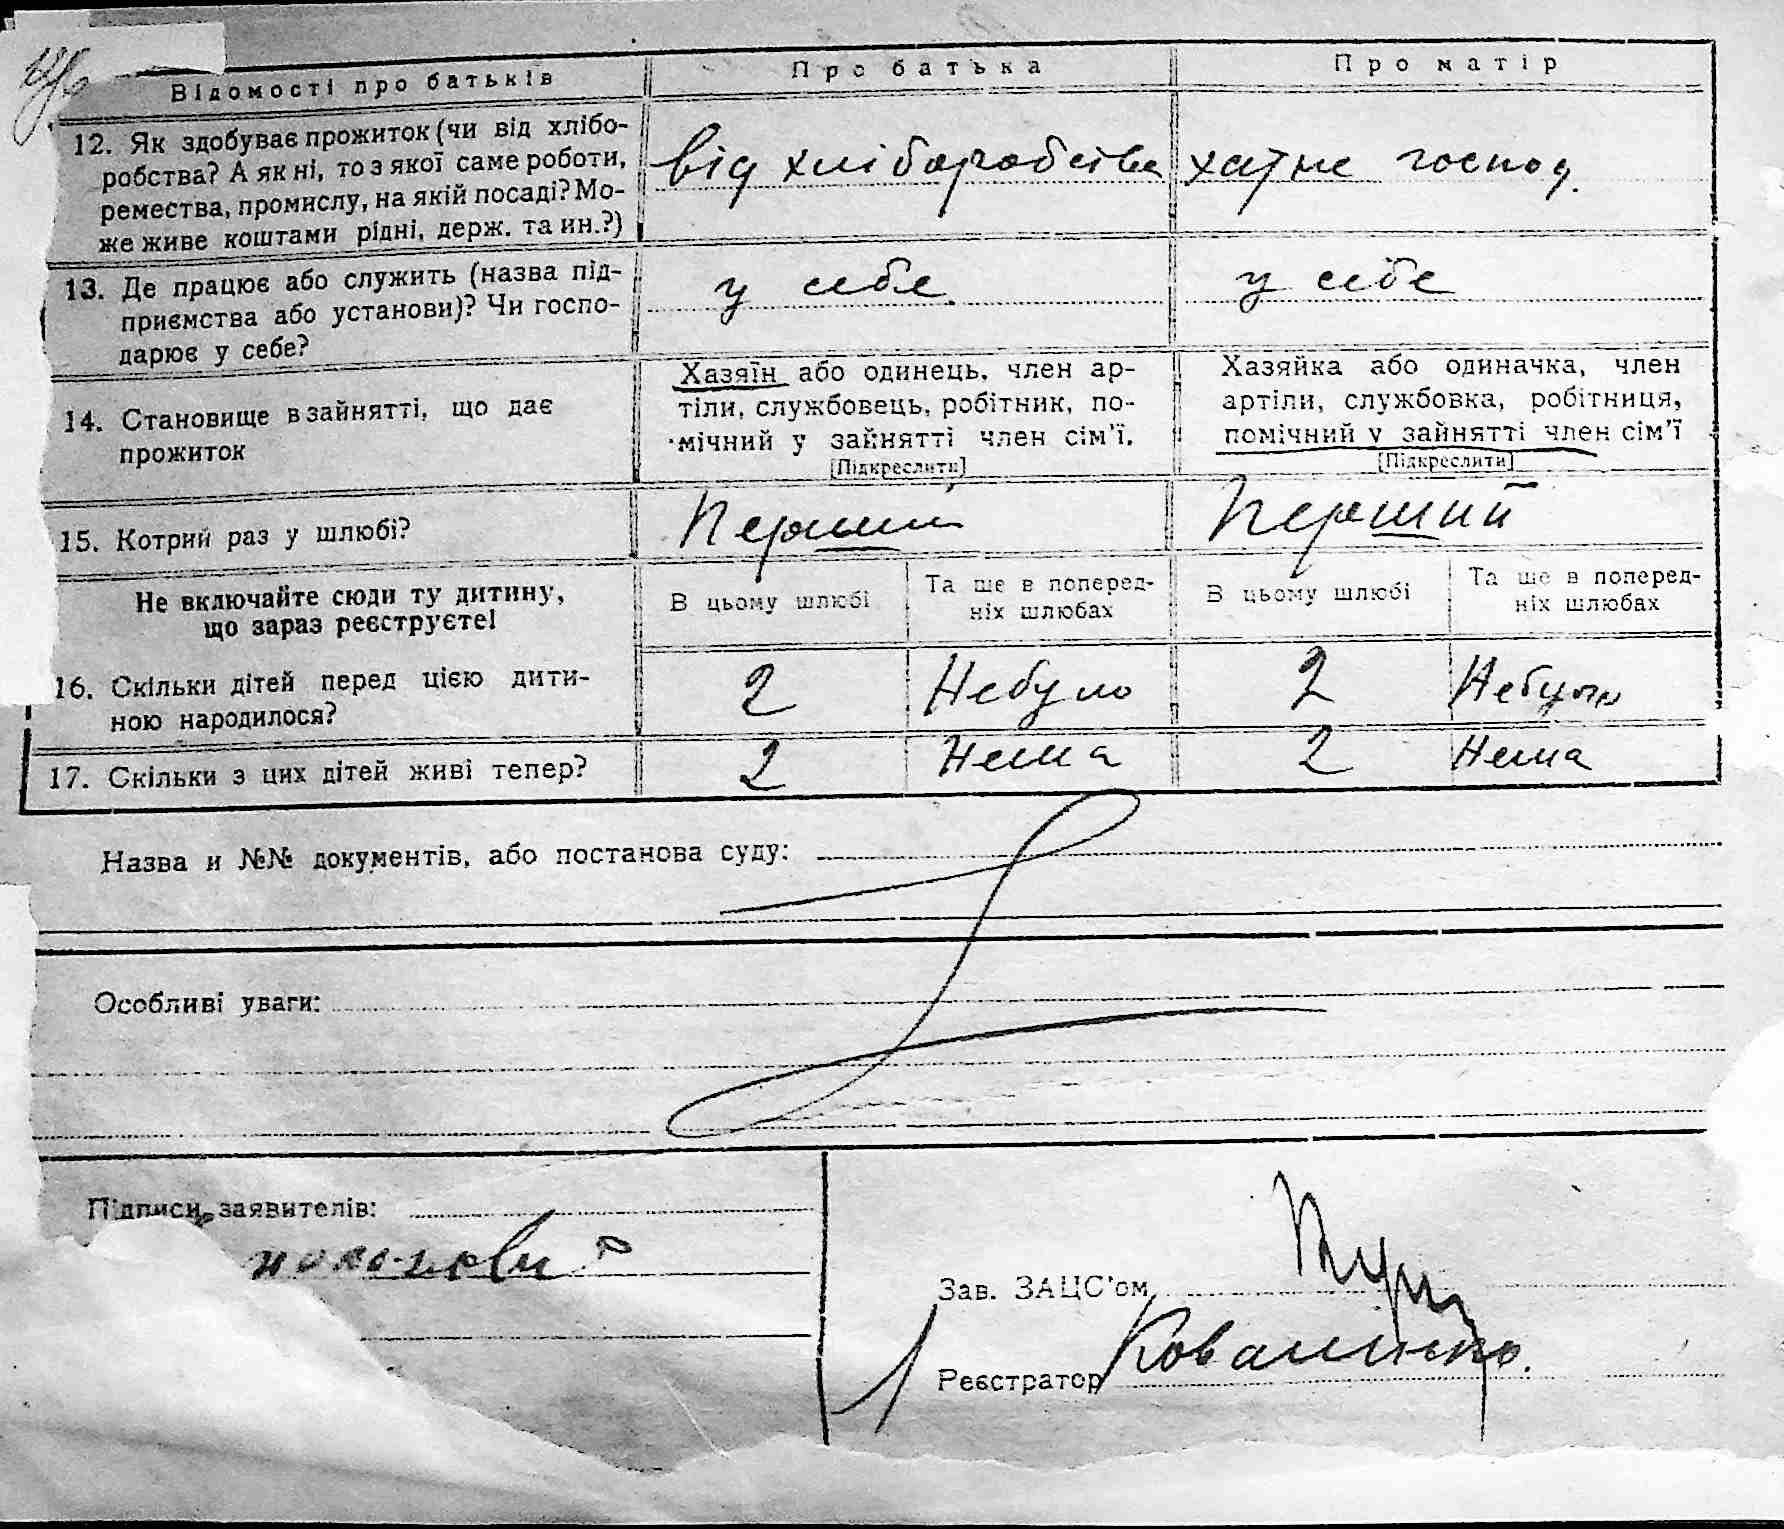 Відомості про батьків Про батька Про матір
12. Як здобуває прожиток (чи від хлібо-
робства? А як ні, то з якої саме роботи,
ремества, промислу, на якій посаді? Мо-
же живе коштами рідні, держ. та ин.?)
від хліборобства хатне господ.
13. Де працює або служить (назва під-
приємства або установи)? Чи госпо-
дарює у себе?
у себе у себе
14. Становище в зайнятті, що дає
прожиток
Хазяїн або одинець, член ар-
тіли, службовець, робітник, по-
мічний у зайнятті член сім'ї.
[Підкреслити]
Хазяйка або одиначка, член
артіли, службовка, робітниця,
помічний у зайнятті член сім'ї
[Підкреслити]
15. Котрий раз у шлюбі? Перший Перший
Не включайте сюди ту дитину,
що зараз реєструєте!
В цьому шлюбі Та ще в поперед-
ніх шлюбах В цьому шлюбі Та ще в поперед-
ніх шлюбах
16. Скільки дітей перед цією дити-
ною народилося?
2 Небуло 2 Небуло
17. Скільки з цих дітей живі тепер? 2 Нема 2 Нема
Назва и №№ документів, або постанова суду:
Особливі уваги:
Підписи заявителів:
Зав. ЗАЦС'ом
Реєстратор Коваленко.